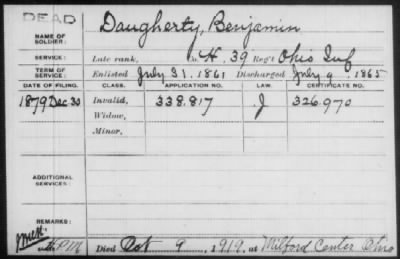 DEAD
NAME OF SOLDIER: Daugherty, Benjamin
SERVICE: Late rank, Co. H, 39 Reg't Ohio Inf
TERM OF SERVICE: Enlisted July 31, 1861 Discharged July 9, 1865
DATE OF FILING. CLASS. APPLICATION NO. LAW. CERTIFICATE NO.
1879 Dec 30 Invalid, 338.817 J 326.970
Widow,
Minor,
ADDITIONAL SERVICES:
REMARKS:
Died Oct 9, 1919, at Milford Center Ohio